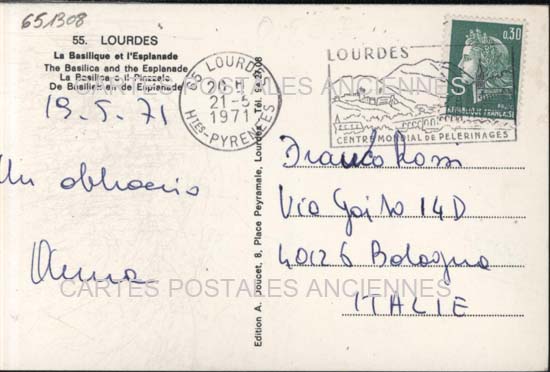 651308
55. LOURDES
La Basilique et l'Esplanade
The Basilica and the Esplanade
La Basilica e il Piazzale
De Basiliek en de Esplanade
19.5.71
Un abbraccio
Anna
65 LOURDES
20 H
21-5
1971
HTES-PYRENEES
LOURDES
CENTRE MONDIAL DE PELERINAGES
0,30
REPUBLIQUE FRANÇAISE
CARTES POSTALES ANCIENNES
Edition A. Doucet, 8, Place Peyramale, Lourdes - Tél.
Franco Rossi
Via Goito 14D
40126 Bologna
ITALIE
CARTES POSTALES ANCIENNES